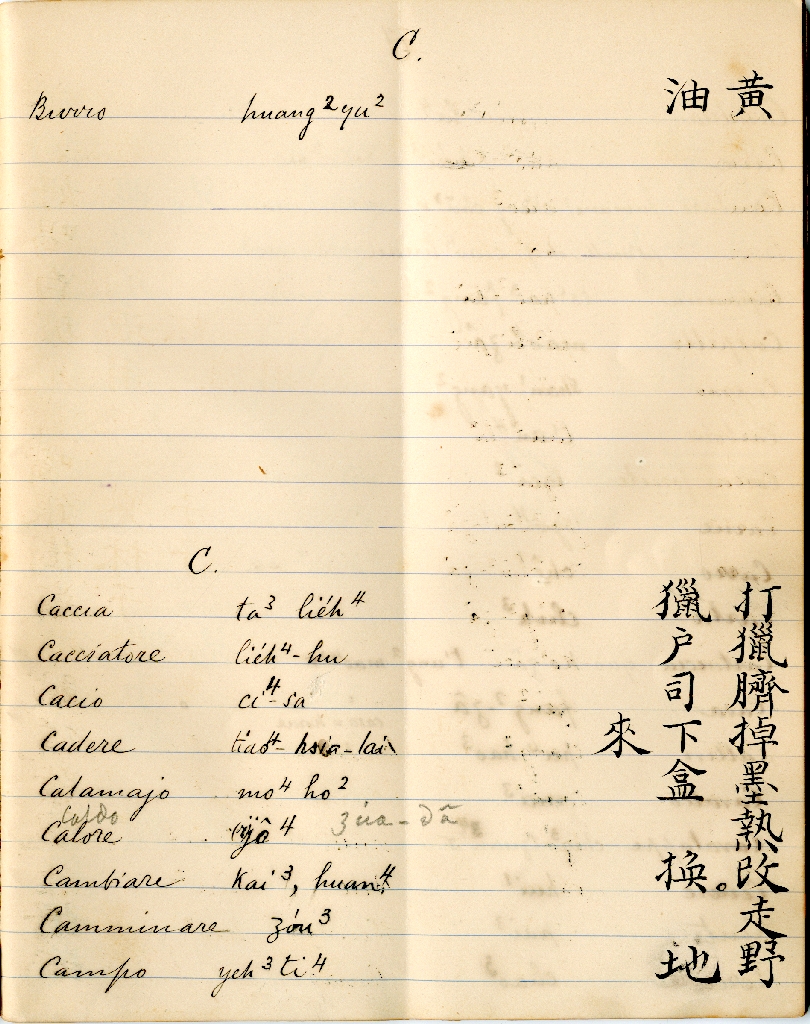 C.
Burro huang² yu² 黃油
C.
Caccia ta³ liéh⁴ 打獵
Cacciatore liéh⁴-hu 獵户
Cacio ci⁴-sa 臍司
Cadere tiao⁴-hsia-lai 掉下來
Calamajo mo⁴ ho² 墨盒
Caldo
Calore jô⁴ 熱
Cambiare Kai³, huan⁴ 改。換
Camminare zóu³ 走
Campo yeh³ ti⁴ 野地